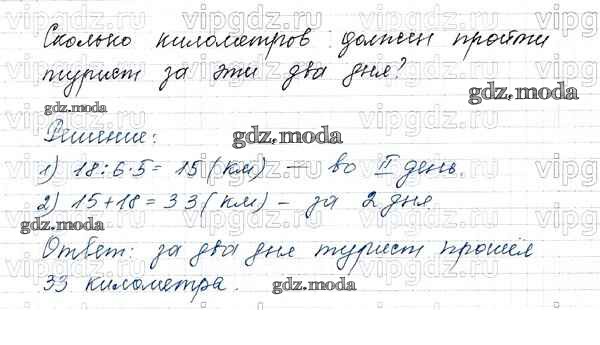 Сколько километров должен пройти
турист за эти два дня?
gdz.moda
gdz.moda
Решение:
gdz.moda
1) 18:6·5= 15 (км) — во II день.
2) 15+18=33 (км) – за 2 дня
gdz.moda
Ответ: за два дня турист прошёл
33 километра.
gdz.moda
vipgdz.com